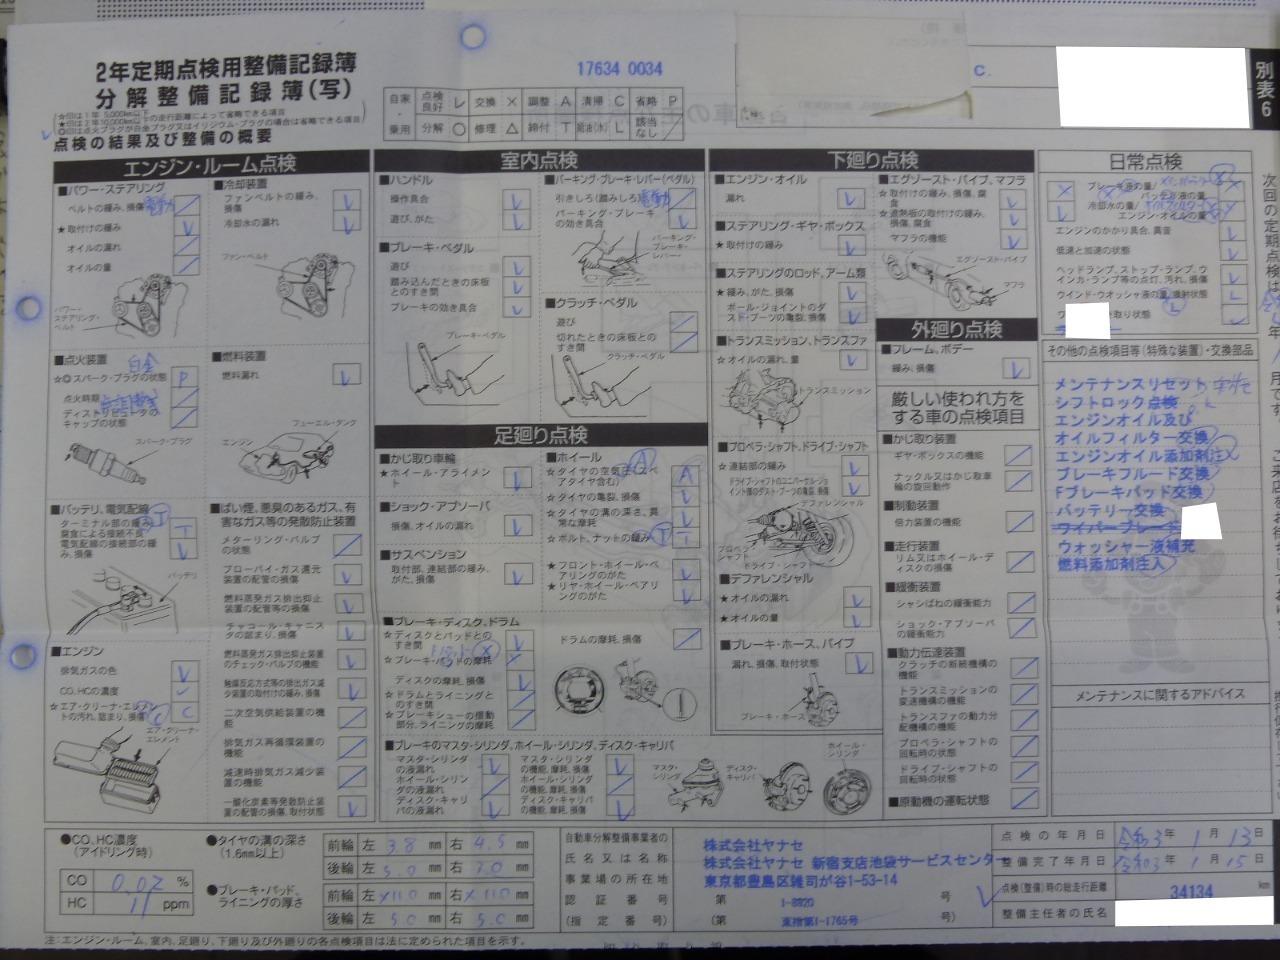 2年定期点検用整備記録簿
分解整備記録簿(写)
☆印は1年 5,000km以下
★印は2年10,000km以下 の走行距離によって省略できる項目
◎印は点火プラグが白金プラグ又はイリジウム・プラグの場合は省略できる項目
点検の結果及び整備の概要
17634 0034
C.
別表6
自家・乗用
点検良好 レ 交換 × 調整 A 清掃 C 省略 P
分解 ○ 修理 △ 締付 T 給油(水) L 該当なし ／
エンジン・ルーム点検
■パワー・ステアリング
ベルトの緩み、損傷 電動
★取付けの緩み
オイルの漏れ
オイルの量
パワー・ステアリング・ベルト
■冷却装置
ファンベルトの緩み、損傷
冷却水の漏れ
ファン・ベルト
■点火装置
白金
☆◎スパーク・プラグの状態 P
点火時期
ディストリビュータのキャップの状態
スパーク・プラグ
■燃料装置
燃料漏れ
フューエル・タンク
エンジン
■バッテリ、電気配線
ターミナル部の緩み、腐食による接続不良 T
電気配線の接続部の緩み、損傷
バッテリ
■ばい煙、悪臭のあるガス、有害なガス等の発散防止装置
メターリング・バルブの状態
ブローバイ・ガス還元装置の配管の損傷
燃料蒸発ガス排出抑止装置の配管等の損傷
チャコール・キャニスタの詰まり、損傷
燃料蒸発ガス排出抑止装置のチェック・バルブの機能
触媒反応方式等の排出ガス減少装置の取付けの緩み、損傷
二次空気供給装置の機能
排気ガス再循環装置の機能
減速時排気ガス減少装置の機能
一酸化炭素等発散防止装置の配管の損傷、取付状態
■エンジン
排気ガスの色
CO、HCの濃度
★エア・クリーナ・エレメントの汚れ、詰まり、損傷 C C
エア・クリーナ・エレメント
室内点検
■ハンドル
操作具合
遊び、がた
■ブレーキ・ペダル
遊び
踏み込んだときの床板とのすき間
ブレーキの効き具合
ブレーキ・ペダル
■パーキング・ブレーキ・レバー(ペダル)
引きしろ(踏みしろ) 電動
パーキング・ブレーキの効き具合
パーキング・ブレーキ・レバー
■クラッチ・ペダル
遊び
切れたときの床板とのすき間
クラッチ・ペダル
足廻り点検
■かじ取り車輪
★ホイール・アライメント
■ショック・アブソーバ
損傷、オイルの漏れ
■サスペンション
取付部、連結部の緩み、がた、損傷
■ホイール
☆タイヤの空気圧(スペアタイヤ含む) A A
☆タイヤの亀裂、損傷
☆タイヤの溝の深さ、異常な摩耗
★ボルト、ナットの緩み T T
★フロント・ホイール・ベアリングのがた
★リヤ・ホイール・ベアリングのがた
■ブレーキ・ディスク、ドラム
☆ディスクとパッドとのすき間
☆ブレーキ・パッドの摩耗
ディスクの摩耗、損傷
☆ドラムとライニングとのすき間
☆ブレーキシューの摺動部分、ライニングの摩耗
ドラムの摩耗、損傷
■ブレーキのマスタ・シリンダ、ホイール・シリンダ、ディスク・キャリパ
マスタ・シリンダの液漏れ
ホイール・シリンダの液漏れ
ディスク・キャリパの液漏れ
マスタ・シリンダの機能、摩耗、損傷
ホイール・シリンダの機能、摩耗、損傷
ディスク・キャリパの機能、摩耗、損傷
マスタ・シリンダ
ディスク・キャリパ
ホイール・シリンダ
下廻り点検
■エンジン・オイル
漏れ
■ステアリング・ギヤ・ボックス
★取付けの緩み
■ステアリングのロッド、アーム類
★緩み、がた、損傷
ボール・ジョイントのダスト・ブーツの亀裂、損傷
■トランスミッション、トランスファ
☆オイルの漏れ、量
トランスミッション
■プロペラ・シャフト、ドライブ・シャフト
★連結部の緩み
ドライブ・シャフトのユニバーサル・ジョイント部のダスト・ブーツの亀裂、損傷
デファレンシャル
プロペラ・シャフト
ドライブ・シャフト
■デファレンシャル
★オイルの漏れ
★オイルの量
■ブレーキ・ホース、パイプ
漏れ、損傷、取付状態
ブレーキ・ホース
■エグゾースト・パイプ、マフラ
★取付けの緩み、損傷、腐食
★遮熱板の取付けの緩み、損傷、腐食
マフラの機能
エグゾースト・パイプ
マフラ
外廻り点検
■フレーム、ボデー
緩み、損傷
厳しい使われ方をする車の点検項目
■かじ取り装置
ギヤ・ボックスの機能
ナックル又はかじ取車輪の旋回動作
■制動装置
倍力装置の機能
■走行装置
リム又はホイール・ディスクの損傷
■緩衝装置
シャシばねの緩衝能力
ショック・アブソーバの緩衝能力
■動力伝達装置
クラッチの断続機構の機能
トランスミッションの変速機構の機能
トランスファの動力分配機構の機能
プロペラ・シャフトの回転時の状態
ドライブ・シャフトの回転時の状態
■原動機の運転状態
日常点検
ブレーキ液の量/
バッテリ液の量
冷却水の量/
エンジン・オイルの量
エンジンのかかり具合、異音
低速と加速の状態
ヘッドランプ、ストップ・ランプ、ウインカ・ランプ等の点灯、汚れ、損傷
ウインド・ウオッシャ液の量、噴射状態 L
拭き取り状態
その他の点検項目等(特殊な装置)・交換部品
メンテナンスリセット
シフトロック点検
エンジンオイル及び
オイルフィルター交換
エンジンオイル添加剤注入
ブレーキフルード交換
Fブレーキパッド交換
バッテリー交換
ワイパーブレード
ウォッシャー液補充
燃料添加剤注入
メンテナンスに関するアドバイス
次回の定期点検は
●CO、HC濃度(アイドリング時)
CO 0.02 %
HC 11 ppm
●タイヤの溝の深さ(1.6mm以上)
前輪 左 3.8 mm 右 4.5 mm
後輪 左 5.0 mm 右 7.0 mm
●ブレーキ・パッド、ライニングの厚さ
前輪 左 ×11.0 mm 右 ×11.0 mm
後輪 左 5.0 mm 右 5.0 mm
自動車分解整備事業者の
氏名又は名称
事業場の所在地
認証番号
(指定番号)
株式会社ヤナセ
株式会社ヤナセ 新宿支店池袋サービスセンター
東京都豊島区雑司が谷1-53-14
第 1-8920 号
(第 東指第1-1765号 号)
点検の年月日 令和3年 1月 13日
整備完了年月日 令和3年 1月 15日
点検(整備)時の総走行距離 34134 km
整備主任者の氏名
注:エンジン・ルーム、室内、足廻り、下廻り及び外廻りの各点検項目は法に定められた項目を示す。